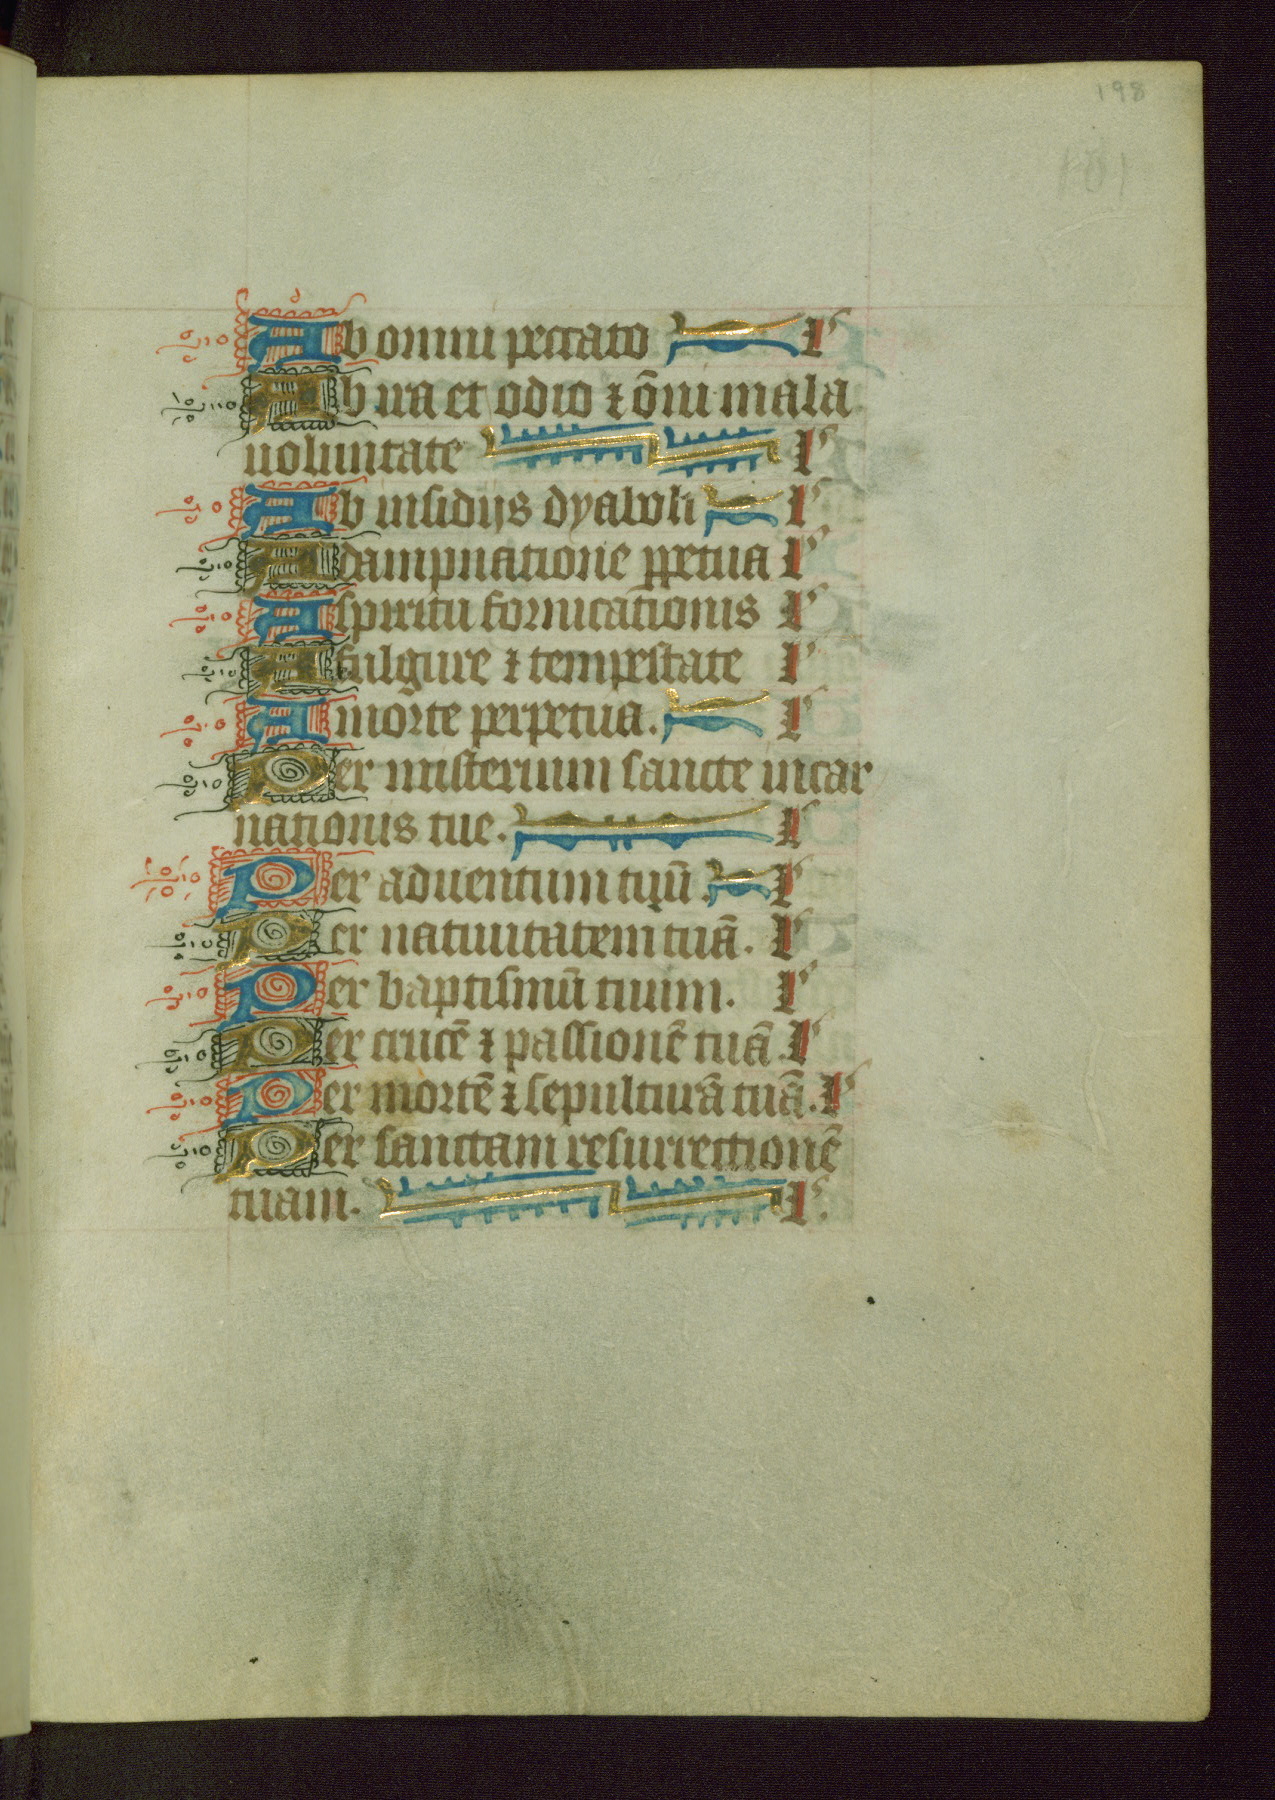 198
181
Ab omni peccato l
Ab ira et odio ⁊ oī̄ mala
uoluntate l
Ab insidijs dyaboli l
A dampnatione ꝑpetua l
A spiritu fornicationis l
A fulgure ⁊ tempestate l
A morte perpetua. l
Per misterium sancte incar
nationis tue. l
Per aduentum tuū. l
Per natiuitatem tuā. l
Per baptismū tuum. l
Per crucē ⁊ passionē tuā. l
Per mortē ⁊ sepulturā tuā. l
Per sanctam resurrectionē
tuam. l